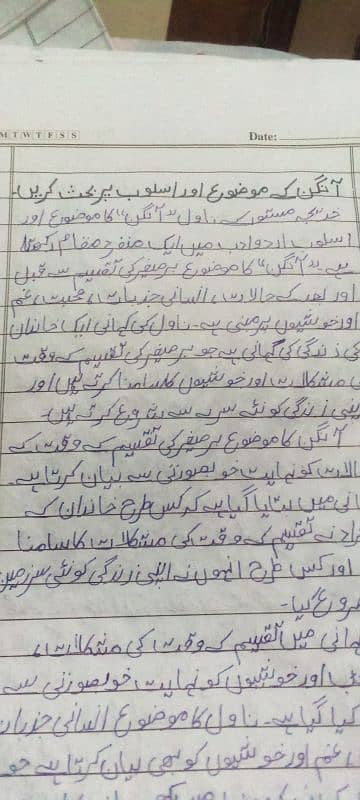 M T W T F S S
Date:
آنگن کے موضوع اور اسلوب پر بحث کریں۔
خدیجہ مستور کے ناول "آنگن" کا موضوع اور
اسلوب اردو ادب میں ایک منفرد مقام رکھتا
ہے۔ "آنگن" کا موضوع برصغیر کی تقسیم سے قبل
اور بعد کے حالات، انسانی جذبات، محبت، غم
اور خوشیوں پر مبنی ہے۔ ناول کی کہانی ایک خاندان
کی زندگی کی کہانی ہے جو برصغیر کی تقسیم کے وقت
مشکلات اور خوشیوں کا سامنا کرتے ہیں اور
اپنی زندگی کو نئے سرے سے شروع کرتے ہیں۔
آنگن کا موضوع برصغیر کی تقسیم کے وقت کے
حالات کو نہایت خوبصورتی سے بیان کرتا ہے۔
میں بتایا گیا ہے کہ کس طرح خاندان کے
نے تقسیم کے وقت کی مشکلات کا سامنا
اور کس طرح انہوں نے اپنی زندگی کو نئی سرزمین
شروع کیا۔
کہانی میں تقسیم کے وقت کی مشکلات،
اور خوشیوں کو نہایت خوبصورتی سے
کیا گیا ہے۔ ناول کا موضوع انسانی جذبات
، غم اور خوشیوں کو بھی بیان کرتا ہے جو